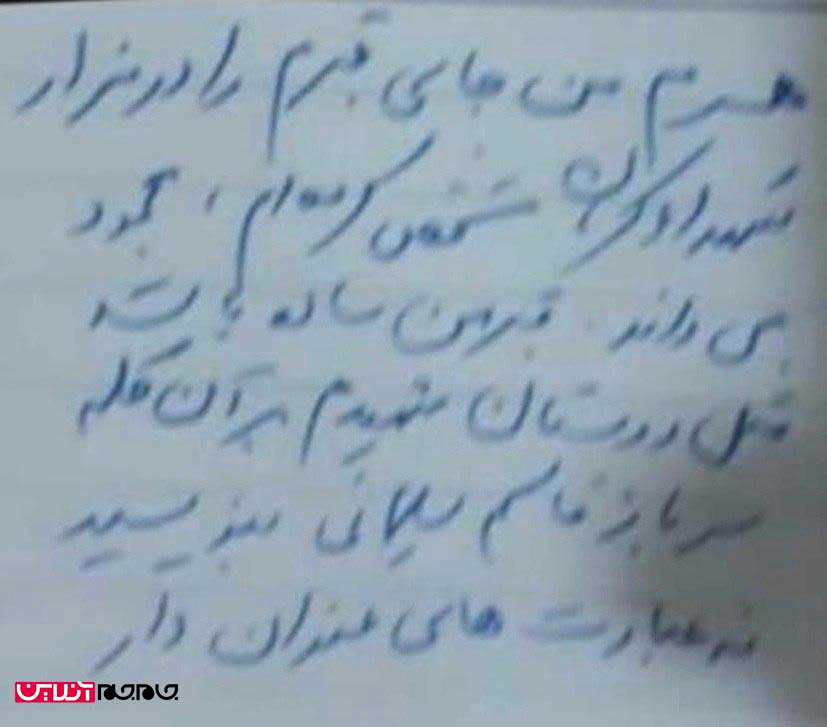 همسرم من جای قبرم را در مزار
شهدا کرمان مشخص کرده‌ام، محمود
می داند. قبر من ساده باشد
مثل دوستان شهیدم بر آن کلمه
سرباز قاسم سلیمانی بنویسید
نه عبارت های عنوان دار
جام‌جم آنلاین